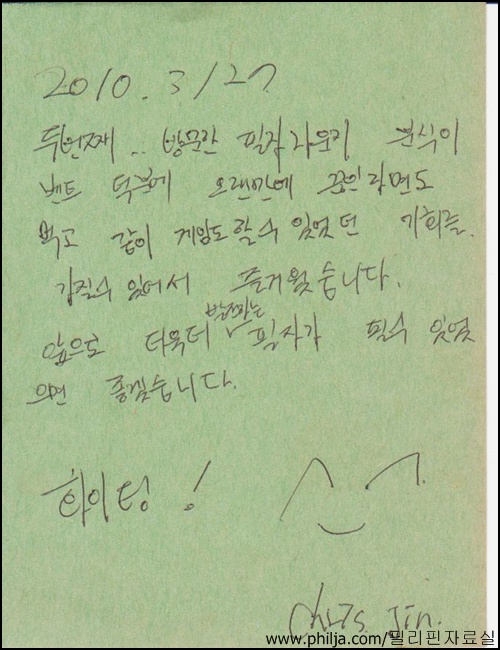 2010. 3/27
두번째.. 방문한 필자라운지 분식이
벤트 덕분에 오랜만에 끓인라면도
먹고 같이 게임도할수 있었던 기회를
가질수 있어서 즐거웠습니다.
앞으로 더욱더 발전하는 필자가 될수 있었
으면 좋겠습니다.
화이팅!
Chris. Jin.
www.philja.com/필리핀자료실